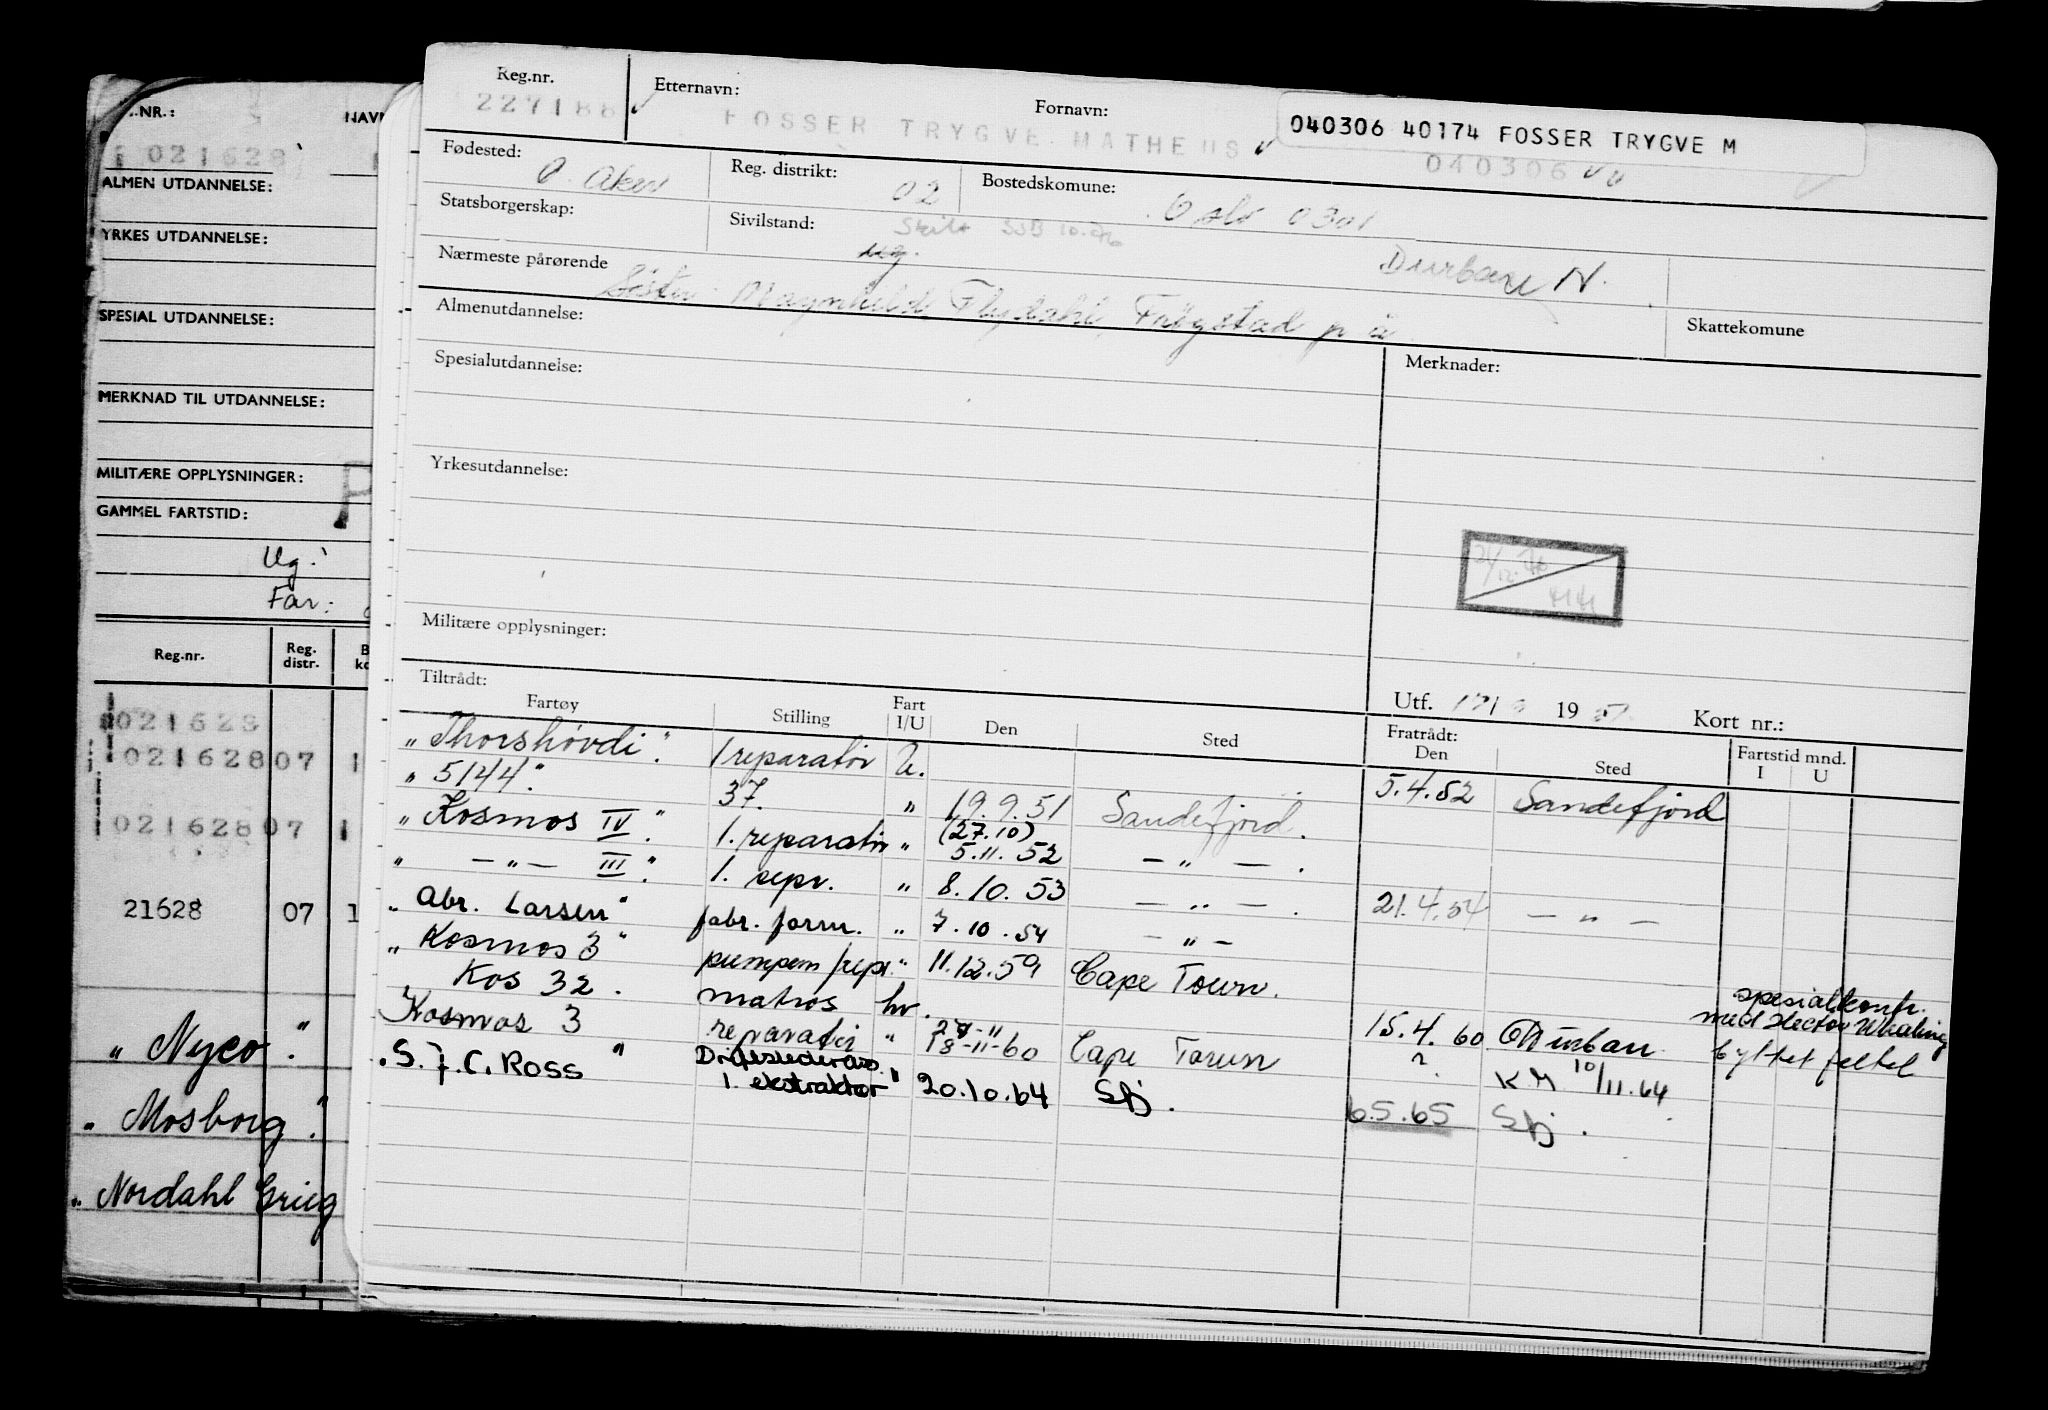 .NR.:
021628
ALMEN UTDANNELSE:
YRKES UTDANNELSE:
SPESIAL UTDANNELSE:
MERKNAD TIL UTDANNELSE:
MILITÆRE OPPLYSNINGER:
GAMMEL FARTSTID:
Ug.
Far:
Reg.nr. Reg. distr.
021628
021628 07 1
021628 07 1
21628 07 1
"Nyco"
"Mosborg"
"Nordahl Grieg
Reg.nr. Etternavn: Fornavn:
227188 FOSSER TRYGVE MATHEUS
040306 40174 FOSSER TRYGVE M
040306
Fødested: Reg. distrikt: Bostedskomune:
Ø. Aker 02 Oslo 0301
Statsborgerskap: Sivilstand:
ug.
Nærmeste pårørende Durban N.
Søster Frøgstad
Almenutdannelse: Skattekomune
Spesialutdannelse: Merknader:
Yrkesutdannelse:
Militære opplysninger:
Tiltrådt: Utf. 19 Kort nr.:
Fartøy Stilling Fart I/U Den Sted Fratrådt: Den Sted Fartstid mnd. I U
"Thorshøvdi" 1 reparatør U. 5.4.52 Sandefjord
"5144" 37. " 19.9.51 Sandefjord.
"Kosmos IV" 1. reparatør " (27.10) 5.11.52 — " —.
" — " — III" 1. repr. " 8.10.53 — " —. 21.4.54 — " —
"Abr. Larsen" fabr. form. " 7.10.54 — " —
"Kosmos 3" pumpem/repr. " 11.12.59 Cape Town.
Kos 32. matros hv. spesialkontr. med Hector Whaling
"Kosmos 3 reparatør " 18-11-60 Cape Town 15.4.60 Durban byttet feltet
"S. J. C. Ross" 1. ekstraktør " 20.10.64 Sfj. ? KM 10/11.64
65.65 Sfj.